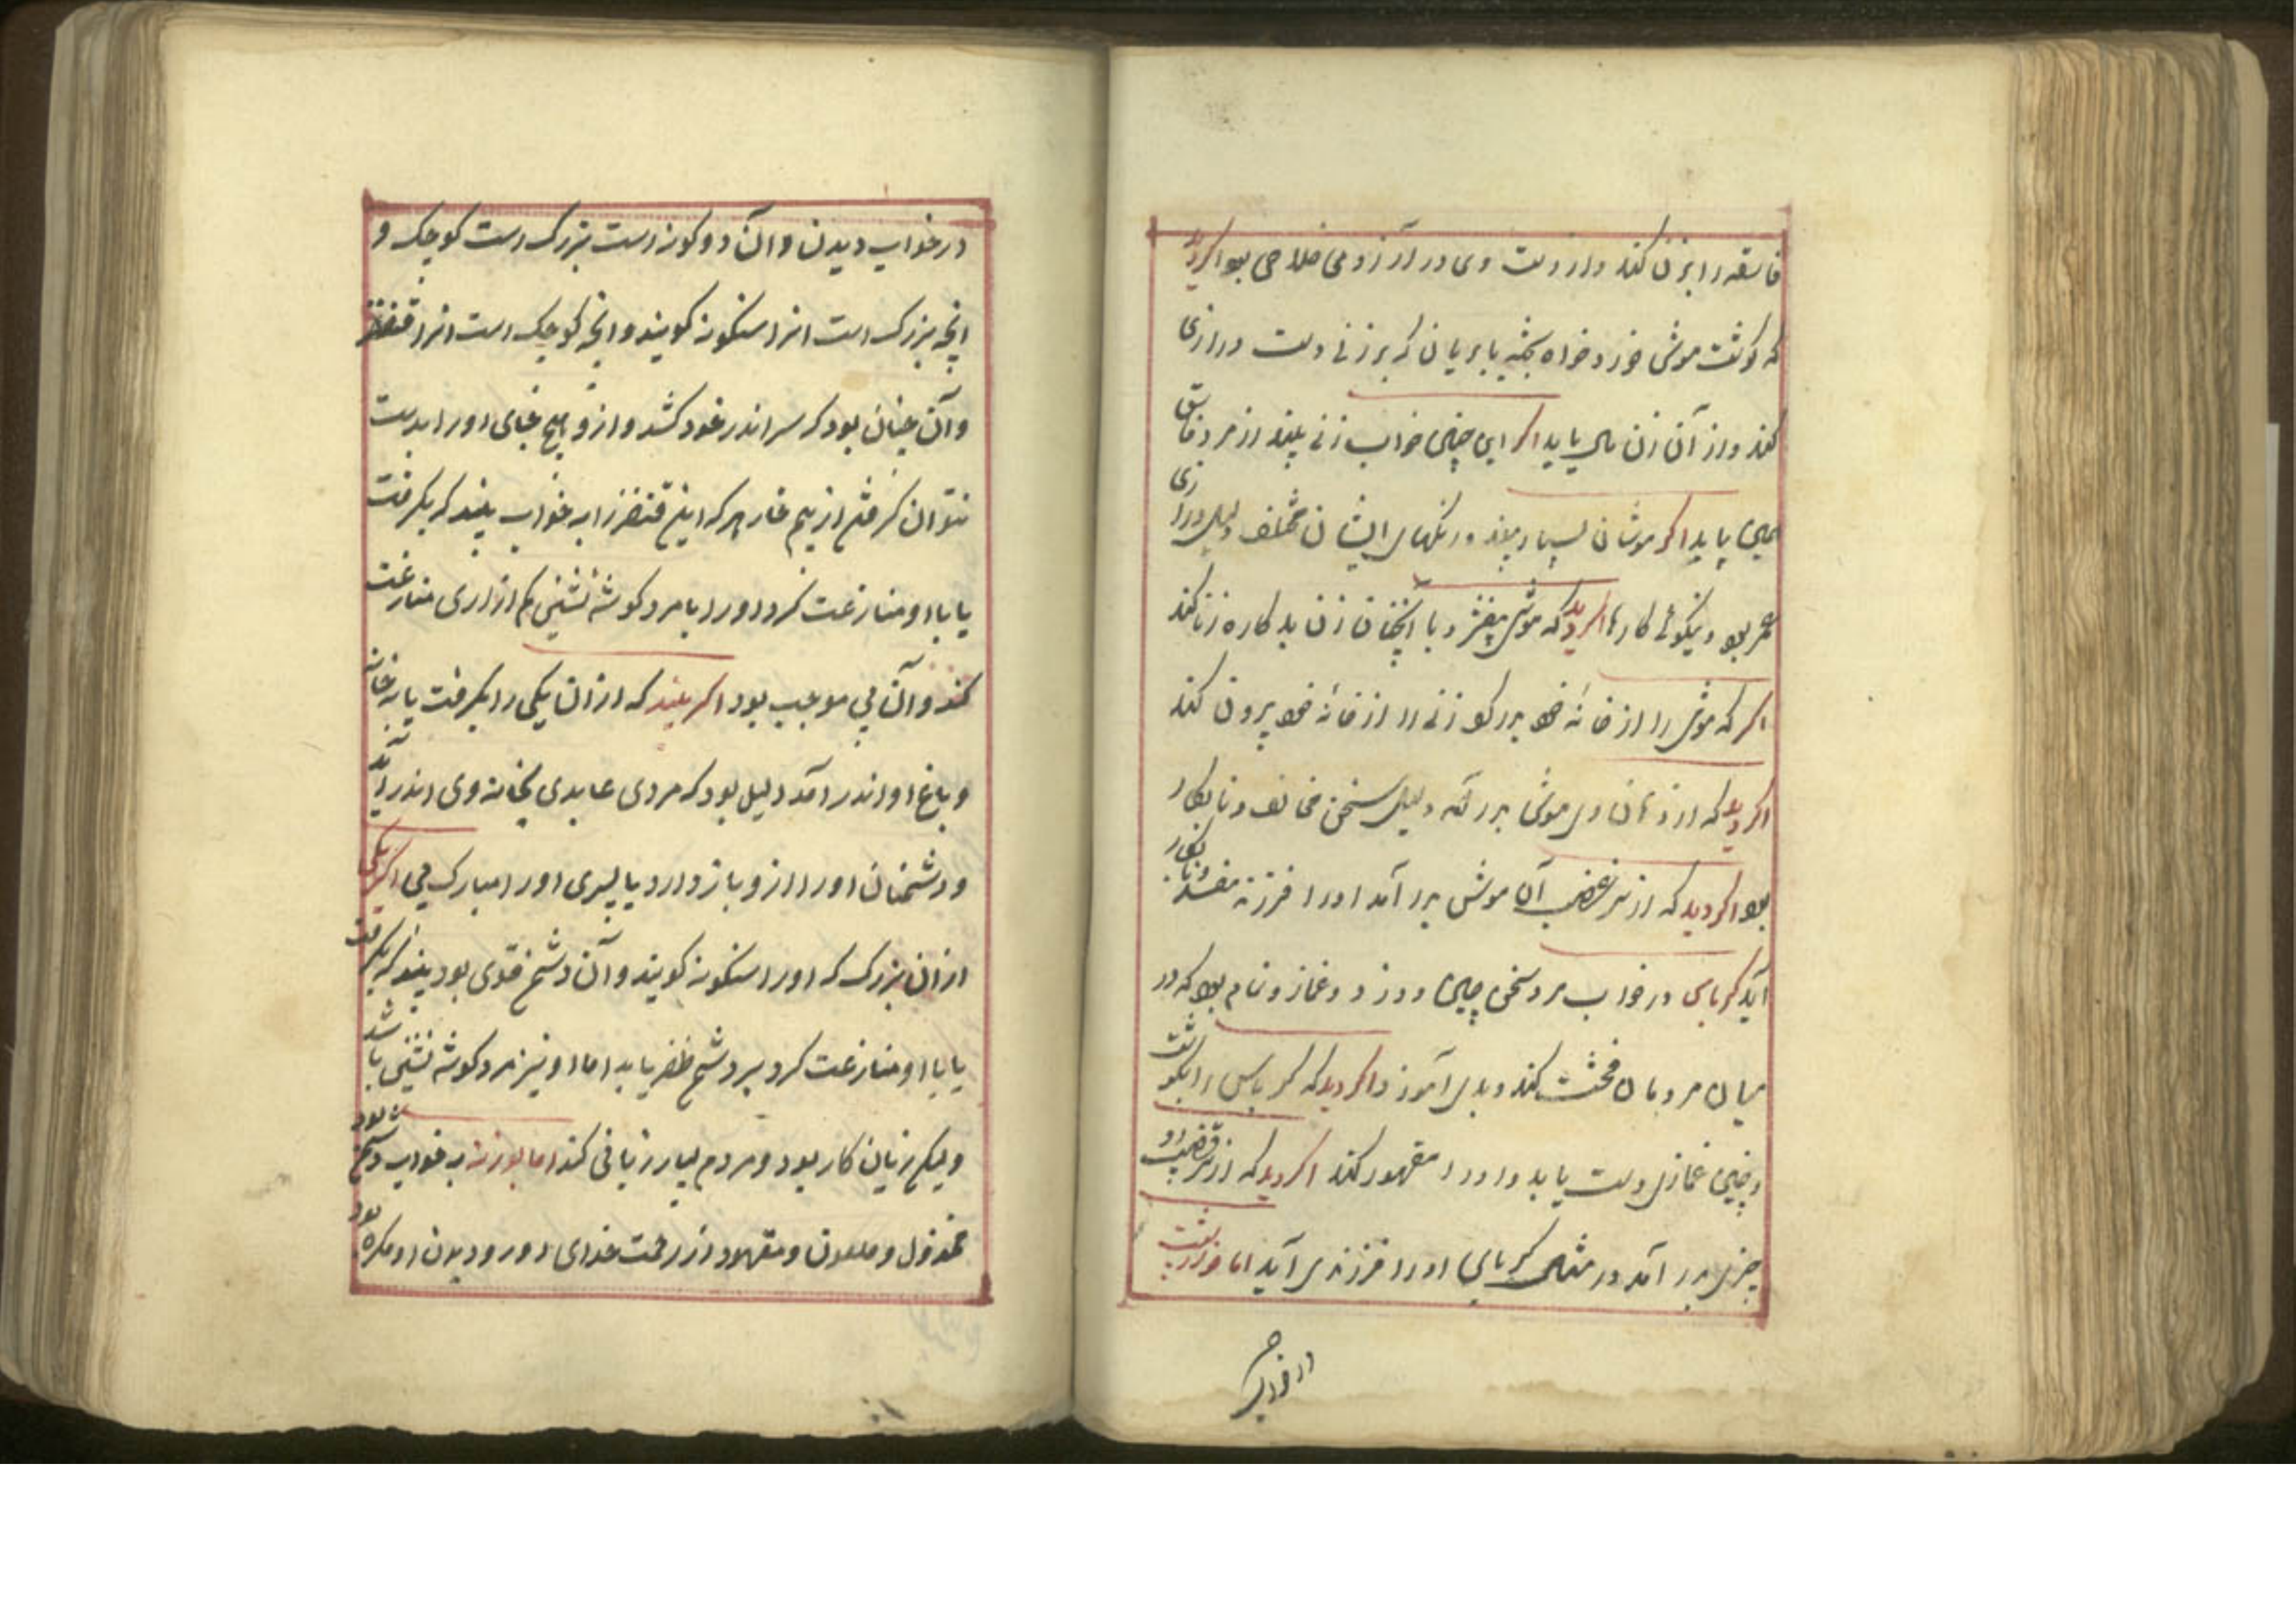 فاسقه را بزنی کند و از دست وی در آرزو می خلاصی بود اکر دید
که کوشت موش خورد خواه پخته یا بریان که بر زنی دست درازی
کند و از آن زن مال یابد اکر این چنین خواب زنی بیند از مرد فاسق
همین یابد اکر موشان بسیار بیند و رنکهای ایشان مختلف دلیل درازی
عمر بود و نیکوئی کارها اکر دید که موش میفشرد با آنچنان زن بد کاره زنا کند
اکر که موش را از خانه خود بدر کرد زنی را از خانه خود بیرون کند
اکر دید که از دهان وی موشی بدر آمد دلیل سخن مخالف و نابکار
بود اکر دید که از سر قضیب آن موش بدر آمد او را فرزند مفسد و نابکار
آید کرباس در خواب مرد سخن چین و دزد و غماز و نمام بود که در
میان مردمان فحشت کند و بدی آموزد اکر دید که کرباس را بکوشت
و چنین غمازی دست یابد و او را مقهور کند اکر دید که از سر قضیب او
چیزی بدر آمد در مثل کرباس او را فرزندی آید اما خارپشت
در خواب
در خواب دیدن و آن دو کونه است بزرک است کوچک و
انچه بزرک است انرا سنکونه کویند و انچه کوچک است انرا قنفذ
و آن چنان بود که سر اندر خود کشد و از و هیچ جای او را بدست
نتوان کرفتن از بیم خار هر که این قنفذ را به خواب بیند که بکرفت
یا با او منازعت کرد او را با مرد کوشه نشینی کم ازاری منازعت
کند و آن بی موجب بود اکر بیند که از ان یکی را بکرفت یا به خانه
و باغ او اندر آمد دلیل بود که مردی عابدی بخانه وی اندر آید
و دشمنان او را از و باز دارد یا پسری او را مبارک می اکر یکی
از ان بزرک که او را سنکونه کویند و آن دشمن قوی بود بیند که بکرفت
یا با او منازعت کرد بر دشمن ظفر یابد اما او نیز مرد کوشه نشینی باشد
ولیکن زیان کار بود و مردم بسیار زیانی کند اما بوزینه به خواب دشمن بود
مخذول و ملعون و مقهور از رحمت خدای دور و دیدن او مکروه بود